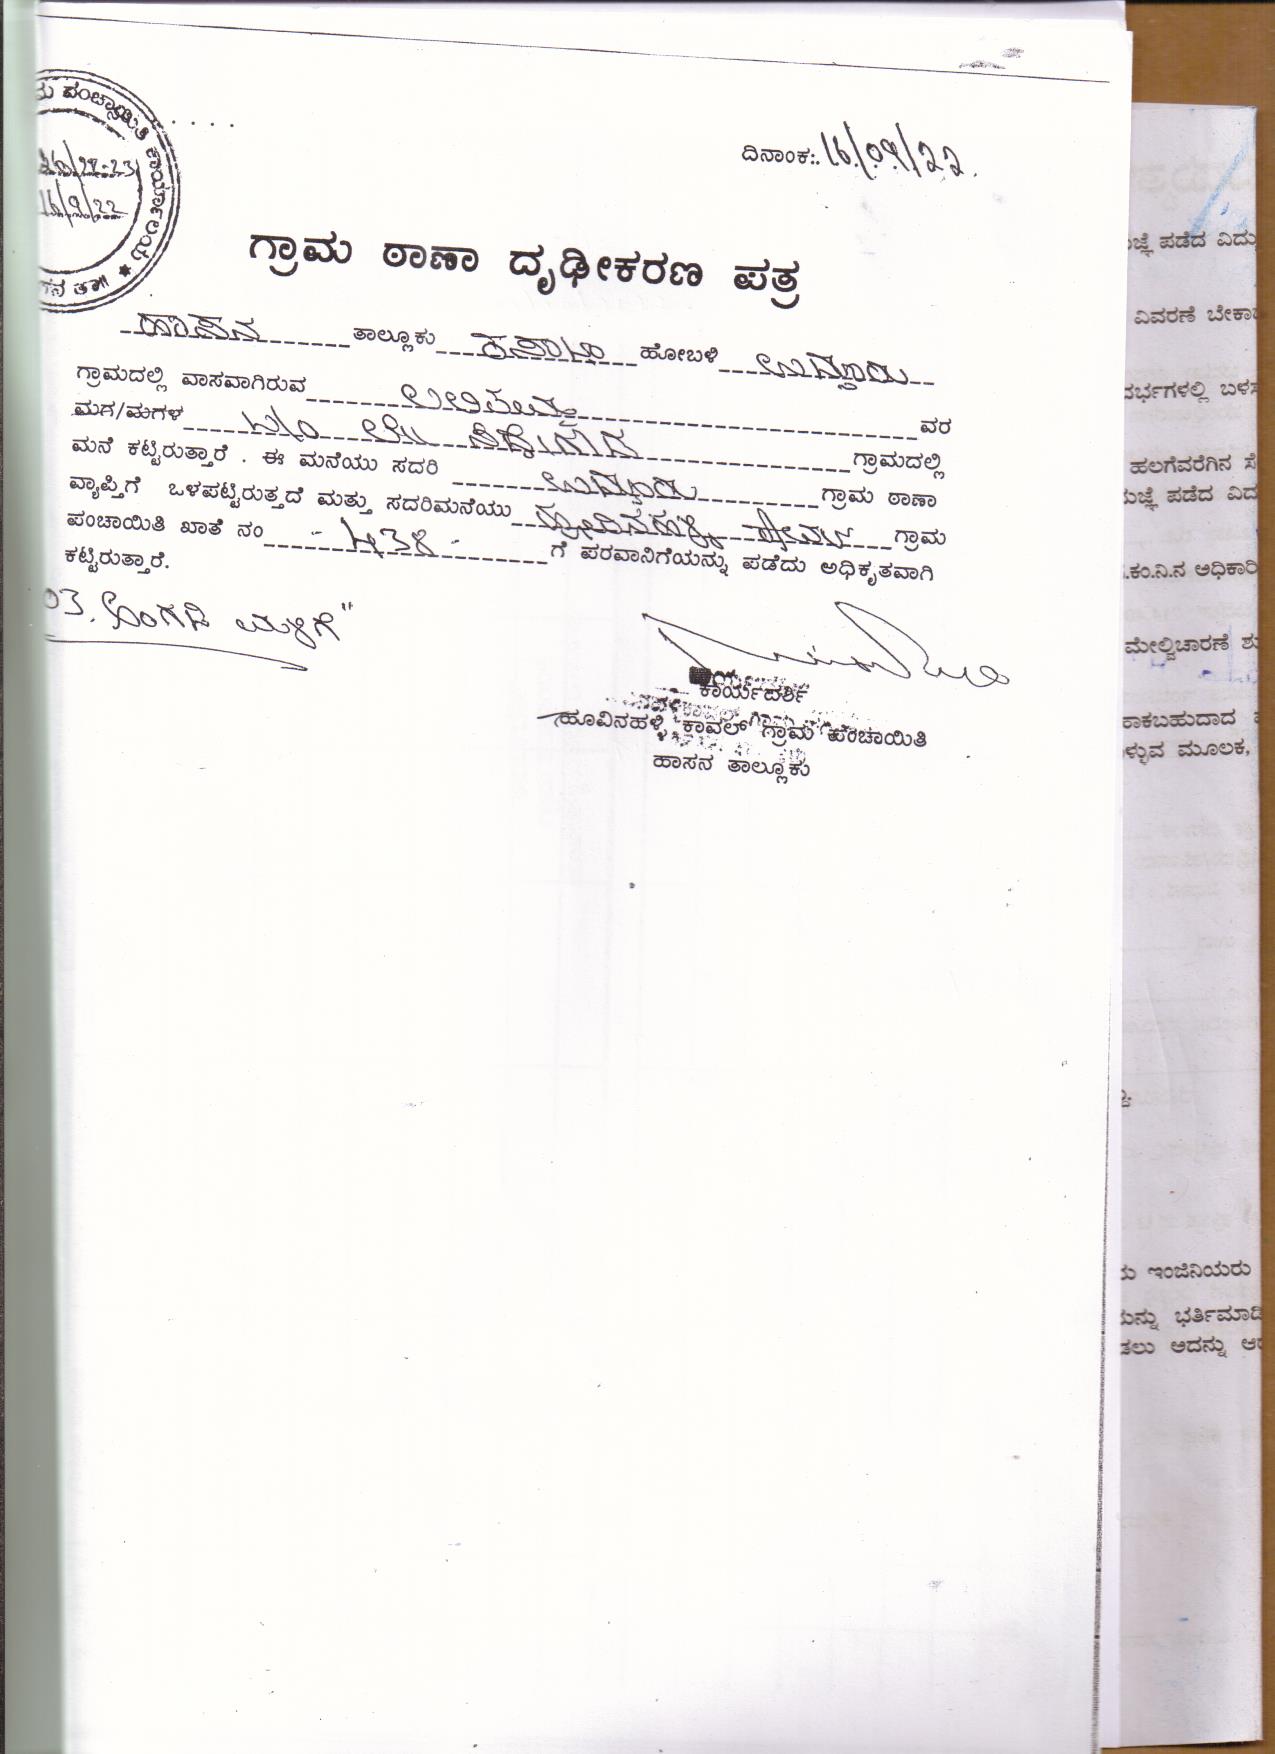 ಮ ಪಂಚಾಯಿತಿ ಕಾರ್ಯಾಲಯ *
/22-23
16/9/22
ದಿನಾಂಕ:. 16/09/22.
ಗ್ರಾಮ ಠಾಣಾ ದೃಢೀಕರಣ ಪತ್ರ
ಹಾಸನ ತಾಲ್ಲೂಕು ಕಸಾಬಾ ಹೋಬಳಿ ಉದ್ದೂರು
ಗ್ರಾಮದಲ್ಲಿ ವಾಸವಾಗಿರುವ ವರ
ಮಗ/ಮಗಳ ಗ್ರಾಮದಲ್ಲಿ
ಮನೆ ಕಟ್ಟಿರುತ್ತಾರೆ . ಈ ಮನೆಯು ಸದರಿ ಉದ್ದೂರು ಗ್ರಾಮ ಠಾಣಾ
ವ್ಯಾಪ್ತಿಗೆ ಒಳಪಟ್ಟಿರುತ್ತದೆ ಮತ್ತು ಸದರಿಮನೆಯು ಹೂವಿನಹಳ್ಳಿ ಕಾವಲ್ ಗ್ರಾಮ
ಪಂಚಾಯಿತಿ ಖಾತೆ ನಂ 438 ಗೆ ಪರವಾನಿಗೆಯನ್ನು ಪಡೆದು ಅಧಿಕೃತವಾಗಿ
ಕಟ್ಟಿರುತ್ತಾರೆ.
03. ಅಂಗಡಿ ಮಳಿಗೆ"
ಕಾರ್ಯದರ್ಶಿ
ಹೂವಿನಹಳ್ಳಿ ಕಾವಲ್ ಗ್ರಾಮ ಪಂಚಾಯಿತಿ
ಹಾಸನ ತಾಲ್ಲೂಕು
ಪಡೆದ ವಿದು
ವಿವರಣೆ ಬೇಕಾ
ದರ್ಭಗಳಲ್ಲಿ ಬಳಸ
ಹಲಗೆವರೆಗಿನ ಸೆ
ಪಡೆದ ವಿದ
.ಕಂ.ನಿ.ನ ಅಧಿಕಾರಿ
ಮೇಲ್ವಿಚಾರಣೆ ಶು
ಹಾಕಬಹುದಾದ
ಳ್ಳುವ ಮೂಲಕ,
ಇಂಜಿನಿಯರು
ಯನ್ನು ಭರ್ತಿಮಾಡಿ
ಡಲು ಅದನ್ನು